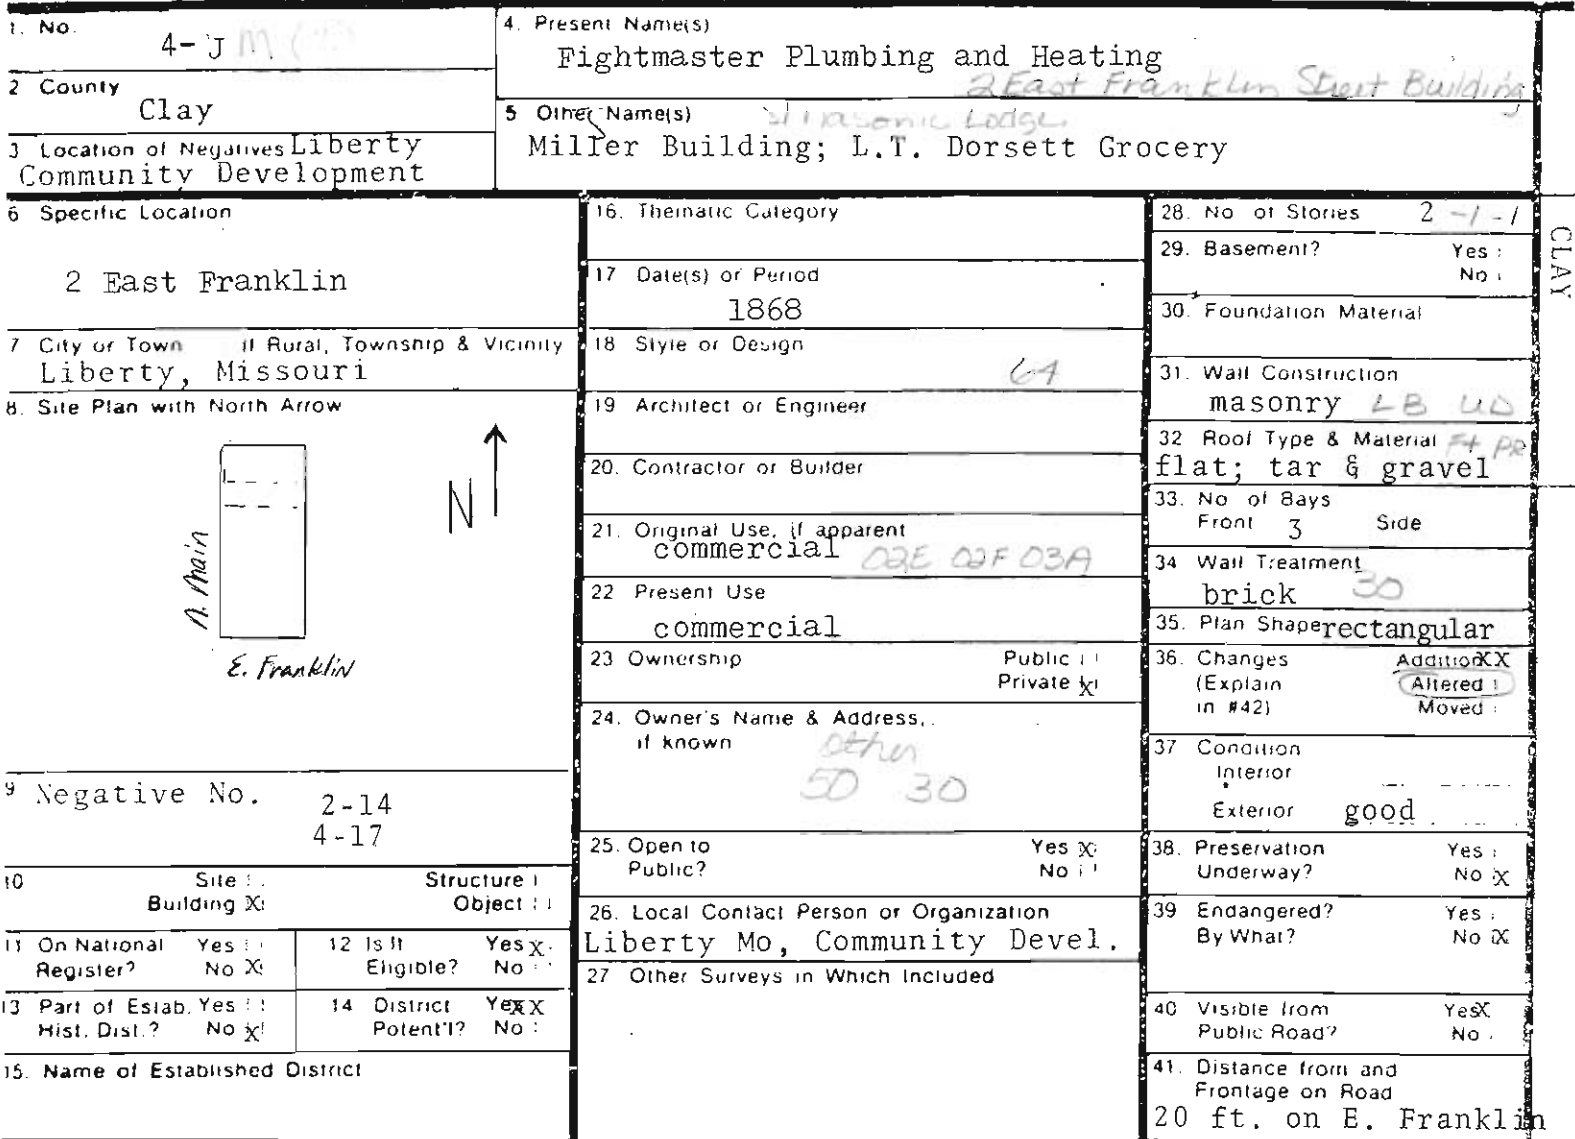 1. No.
4-J
4. Present Name(s)
Fightmaster Plumbing and Heating
2 East Franklin Street Building
2 County
Clay
5 Other Name(s)
Masonic Lodge
Miller Building; L.T. Dorsett Grocery
3 Location of Negatives Liberty
Community Development
6 Specific Location
2 East Franklin
7 City or Town If Rural, Township & Vicinity
Liberty, Missouri
8. Site Plan with North Arrow
N
N. Main
E. Franklin
9 Negative No. 2-14
4-17
10 Site
Structure
Building X
Object
11 On National Register? Yes
No X
12 Is It Eligible? Yes X
No
13 Part of Estab. Hist. Dist.? Yes
No X
14 District Potent'l? Yes XX
No
15. Name of Established District
16. Thematic Category
17 Date(s) or Period
1868
18 Style or Design
64
19 Architect or Engineer
20. Contractor or Builder
21. Original Use, if apparent
commercial 02E 02F 03A
22 Present Use
commercial
23 Ownership Public
Private X
24. Owner's Name & Address,
if known
Other
50 30
25. Open to Public? Yes X
No
26. Local Contact Person or Organization
Liberty Mo, Community Devel.
27 Other Surveys in Which Included
28. No of Stories 2 -1 -1
29. Basement? Yes
No
30. Foundation Material
31. Wall Construction
masonry LB UD
32 Roof Type & Material Ft PR
flat; tar & gravel
33. No of Bays
Front 3 Side
34 Wall Treatment
brick 30
35. Plan Shape rectangular
36. Changes Addition XX
(Explain Altered
in #42) Moved
37 Condition
Interior
Exterior good
38. Preservation Underway? Yes
No X
39 Endangered? Yes
By What? No X
40 Visible from Public Road? Yes X
No
41. Distance from and
Frontage on Road
20 ft. on E. Franklin
CLAY